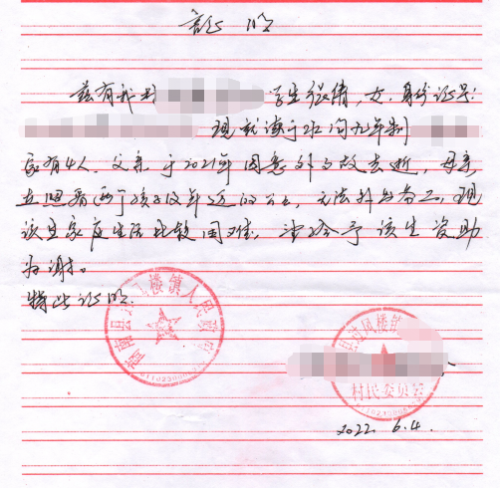 证明
兹有我村 学生张倩,女,身份证号:
现就读于 九年制
家有4人,父亲于2021年因意外事故去逝,母亲
在照看两个孩子及年迈的公公,无法外出务工,现
该生家庭生活比较困难,望给予该生资助
为谢。
特此证明.
风楼镇人民政府
村民委员会
2022.6.4.